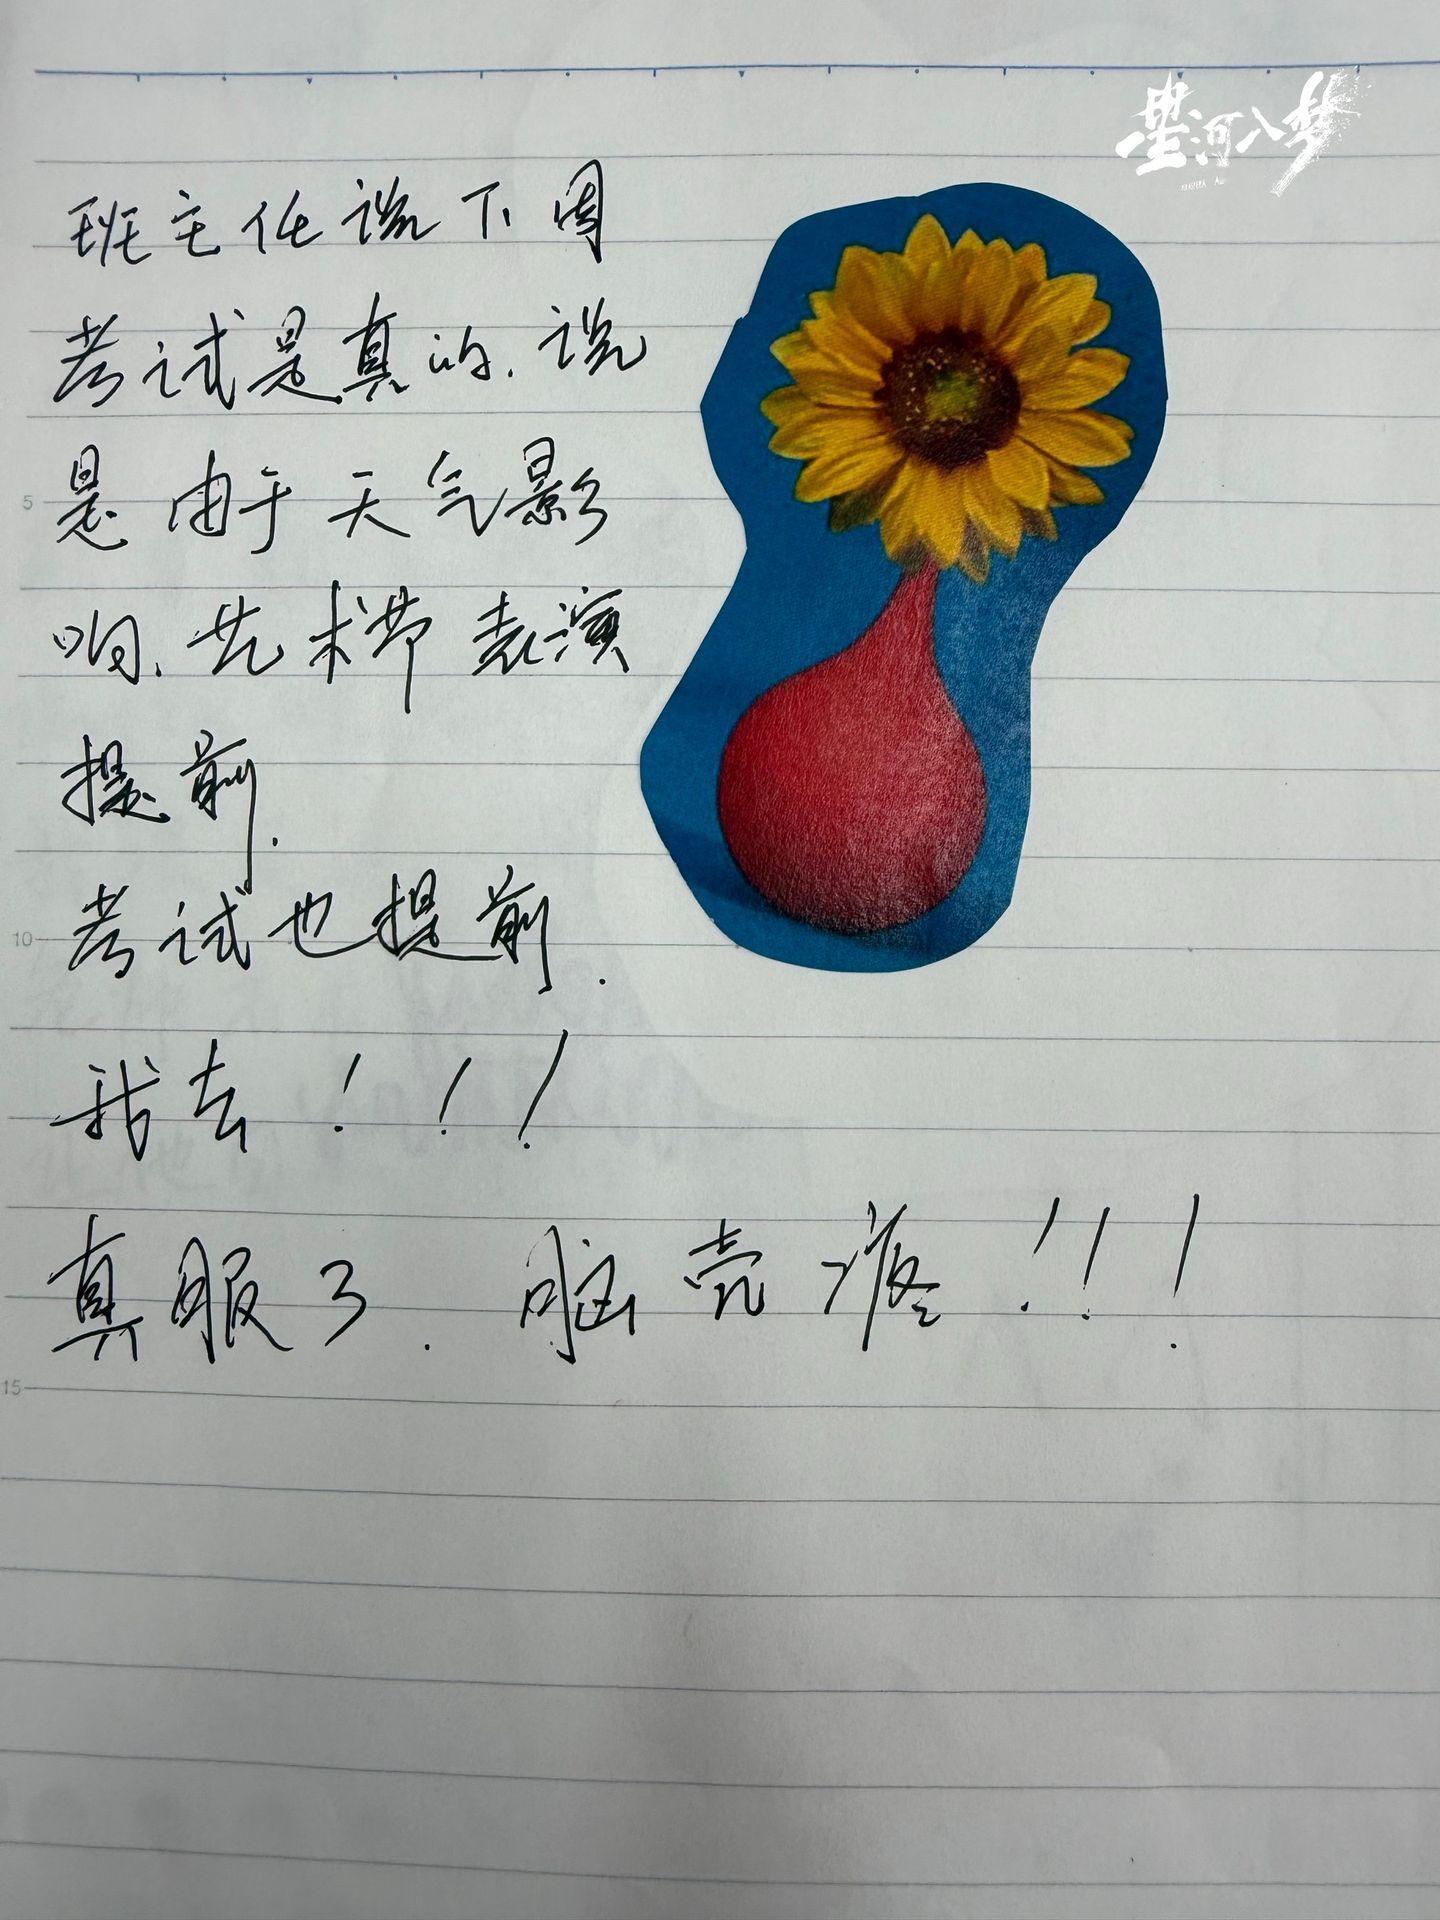 星河入梦
班主任说下周
考试是真的.说
是由于天气影
响.艺术节表演
提前.
考试也提前.
我去!!!
真服了.脑壳疼!!!
5
10
15